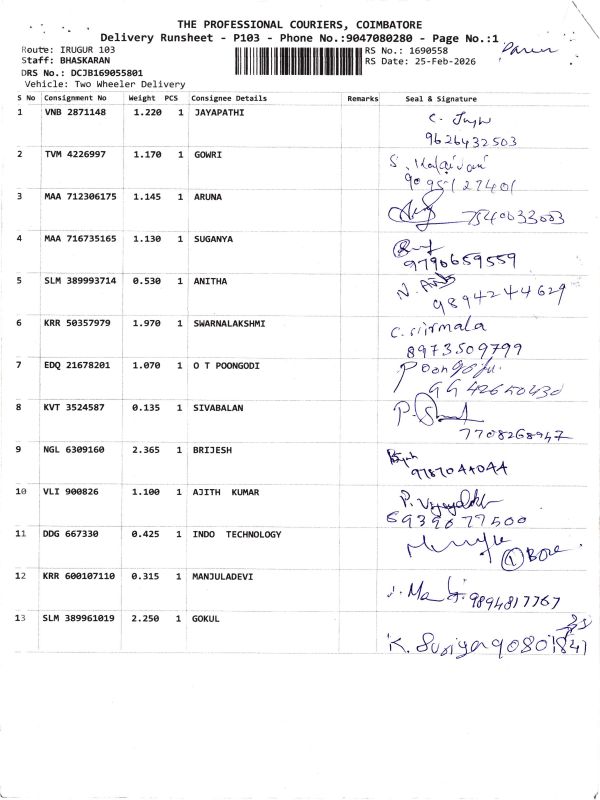 THE PROFESSIONAL COURIERS, COIMBATORE
Delivery Runsheet - P103 - Phone No.:9047080280 - Page No.:1
Route: IRUGUR 103 RS No.: 1690558
Staff: BHASKARAN RS Date: 25-Feb-2026
DRS No.: DCJB169055801
Vehicle: Two Wheeler Delivery
S No Consignment No Weight PCS Consignee Details Remarks Seal & Signature
1 VNB 2871148 1.220 1 JAYAPATHI C.
9626432503
2 TVM 4226997 1.170 1 GOWRI S. Kalaivani
3 MAA 712306175 1.145 1 ARUNA
7540033003
4 MAA 716735165 1.130 1 SUGANYA
9790659559
5 SLM 389993714 0.530 1 ANITHA N.
9894244629
6 KRR 50357979 1.970 1 SWARNALAKSHMI C. Nirmala
8973509799
7 EDQ 21678201 1.070 1 O T POONGODI
8 KVT 3524587 0.135 1 SIVABALAN P.
7708268947
9 NGL 6309160 2.365 1 BRIJESH
9787044044
10 VLI 900826 1.100 1 AJITH KUMAR P.
11 DDG 667330 0.425 1 INDO TECHNOLOGY
12 KRR 600107110 0.315 1 MANJULADEVI
9894817767
13 SLM 389961019 2.250 1 GOKUL
K. Suriya